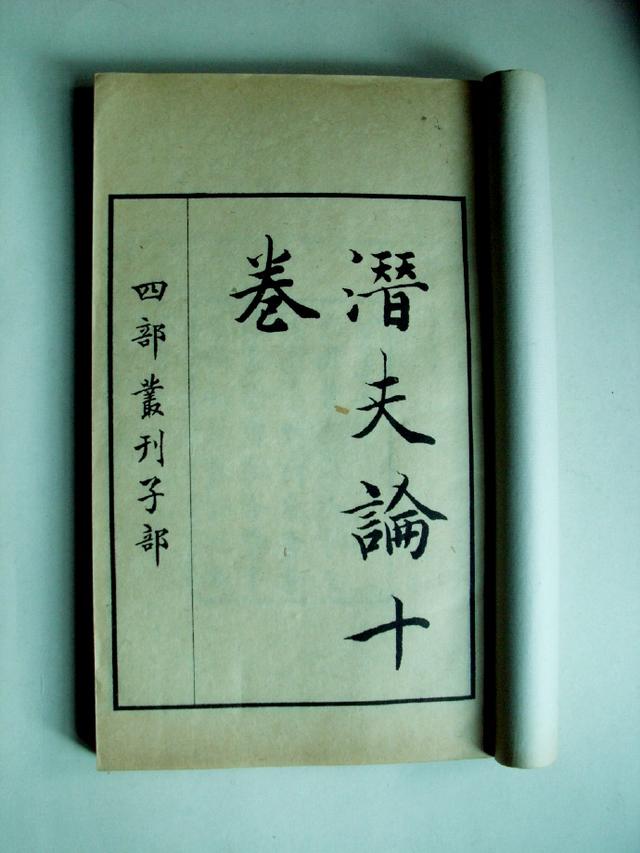 潛夫論十
卷
四部叢刊子部